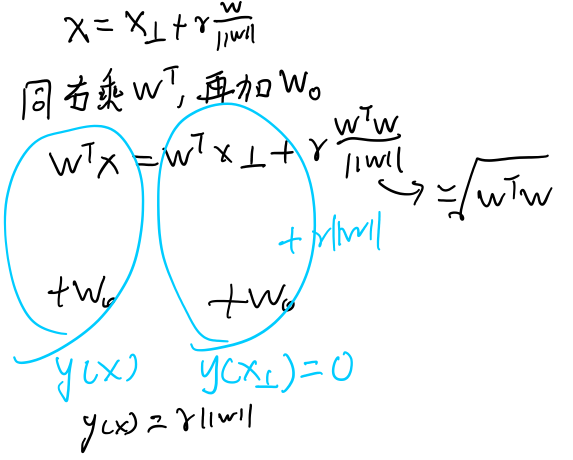 x = x⊥ + r w/||w||
同右乘 wᵀ, 再加 w₀
wᵀx = wᵀx⊥ + r wᵀw/||w|| → = √wᵀw
+ r||w||
+w₀ +w₀
y(x) y(x⊥) = 0
y(x) = r||w||